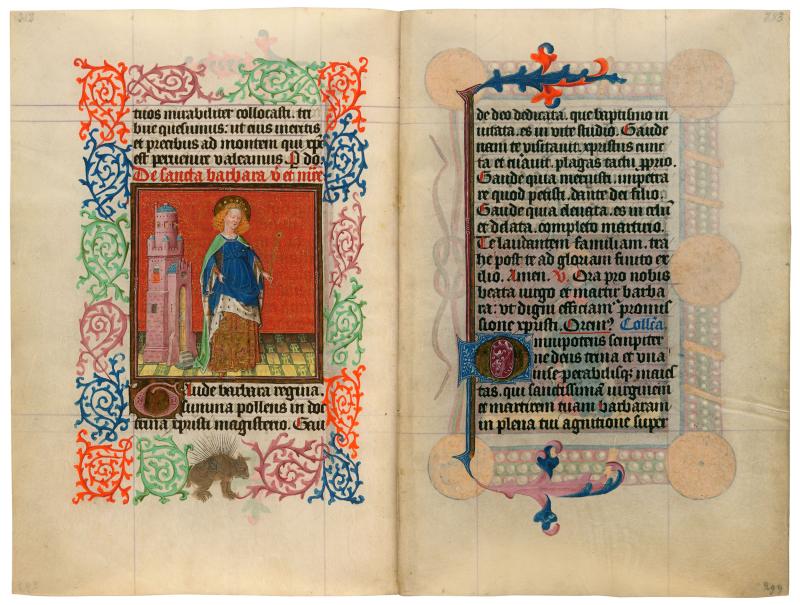 tuos mirabiliter collocasti. tri
bue quesumus: ut eius meritis
et precibus ad montem qui xp̄s
est pervenire valeamus. P do.
De sancta barbara v et m̄re
Gaude barbara regina.
summa pollens in doc
trina xpristi magisterio. Gau
283
de deo dedicata. que baptismo in
iutata. es in vite studio. Gaude
nem te visitavit. xpristus cunc
ta et curavit. plagas tactu pprio.
Gaude quia meruisti. impetra
re quod petisti. dante dei filio.
Gaude quia elevata. es in celū
et delata. completo martirio.
Te laudantem familiam. tra
he post te ad gloriam finito ex
ilio. Amen. v. Ora pro nobis
beata virgo et martir barba
ra: vt digni efficiam promis
sione xpristi. Orem⁹ Collcā.
Omnipotens sempiter
ne deus trina et vna
inseperabilisq; maies
tas. qui sanctissimā virginem
et martirem tuam barbaram
in plena tui agnitione super